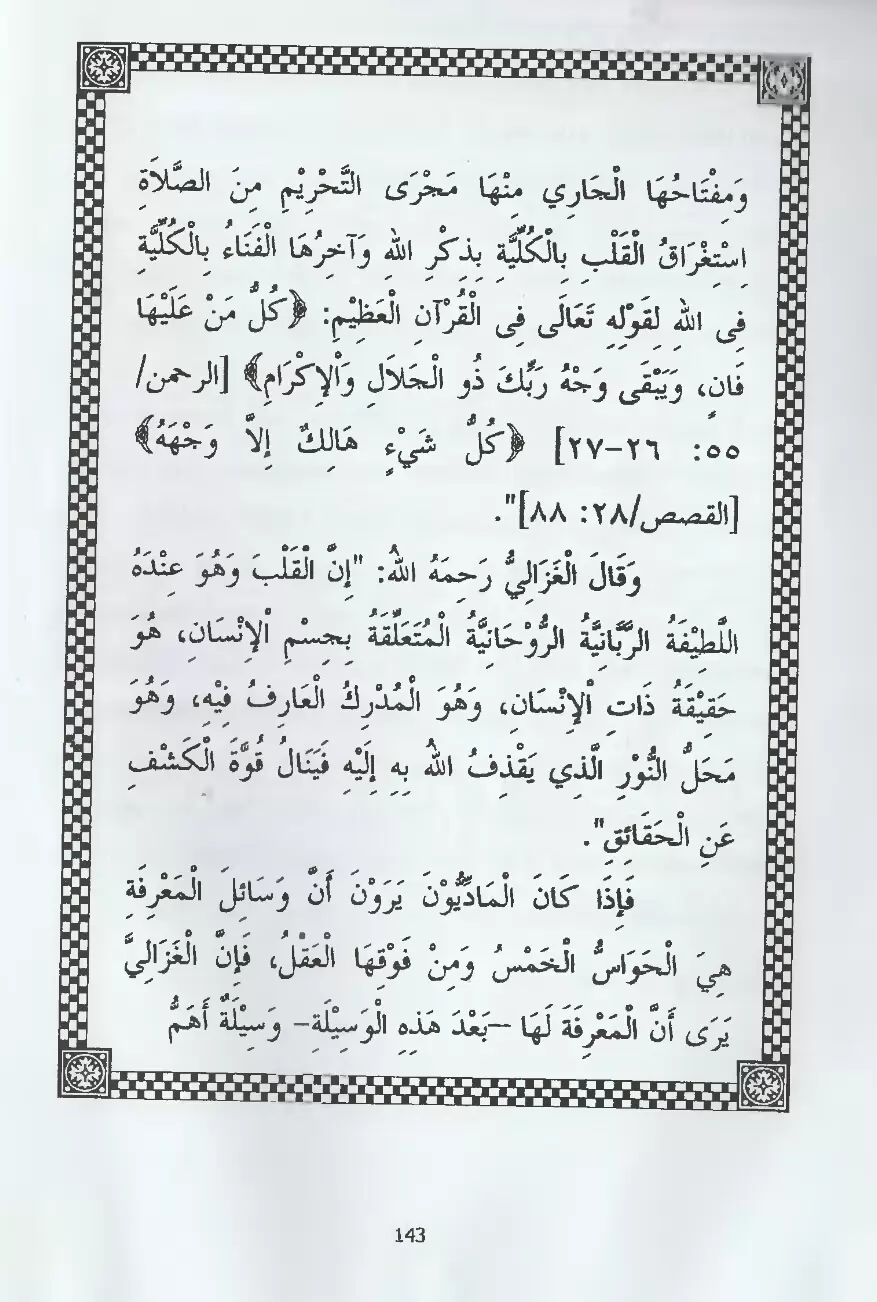 وَمِفْتَاحُهَا الْجَارِي مِنْهَا مَجْرَى التَّحْرِيْمِ مِنَ الصَّلاَةِ
اسْتِغْرَاقُ الْقَلْبِ بِالْكُلِّيَّةِ بِذِكْرِ اللهِ وَآخِرُهَا الْفَنَاءُ بِالْكُلِّيَّةِ
فِى اللهِ لِقَوْلِهِ تَعَالَى فِى الْقُرْآنِ الْعَظِيْمِ: ﴿كُلُّ مَنْ عَلَيْهَا
فَانٍ، وَيَبْقَى وَجْهُ رَبِّكَ ذُو الْجَلاَلِ وَاْلإِكْرَامِ﴾ [الرحمن/
٥٥: ٢٦-٢٧] ﴿كُلُّ شَيْءٍ هَالِكٌ إِلاَّ وَجْهَهُ﴾
[القصص/٢٨: ٨٨]".
وَقَالَ الْغَزَالِيُّ رَحِمَهُ اللهُ: "إِنَّ الْقَلْبَ وَهُوَ عِنْدَهُ
اللَّطِيْفَةُ الرَّبَّانِيَّةُ الرُّوْحَانِيَّةُ الْمُتَعَلِّقَةُ بِجِسْمِ اْلإِنْسَانِ، هُوَ
حَقِيْقَةُ ذَاتِ اْلإِنْسَانِ، وَهُوَ الْمُدْرِكُ الْعَارِفُ فِيْهِ، وَهُوَ
مَحَلُّ النُّوْرِ الَّذِي يَقْذِفُ اللهُ بِهِ إِلَيْهِ فَيَنَالُ قُوَّةَ الْكَشْفِ
عَنِ الْحَقَائِقِ".
فَإِذَا كَانَ الْمَادِّيُّوْنَ يَرَوْنَ أَنَّ وَسَائِلَ الْمَعْرِفَةِ
هِيَ الْحَوَاسُّ الْخَمْسُ وَمِنْ فَوْقِهَا الْعَقْلُ، فَإِنَّ الْغَزَالِيَّ
يَرَى أَنَّ الْمَعْرِفَةَ لَهَا –بَعْدَ هَذِهِ الْوَسِيْلَةِ– وَسِيْلَةٌ أَهَمُّ
143